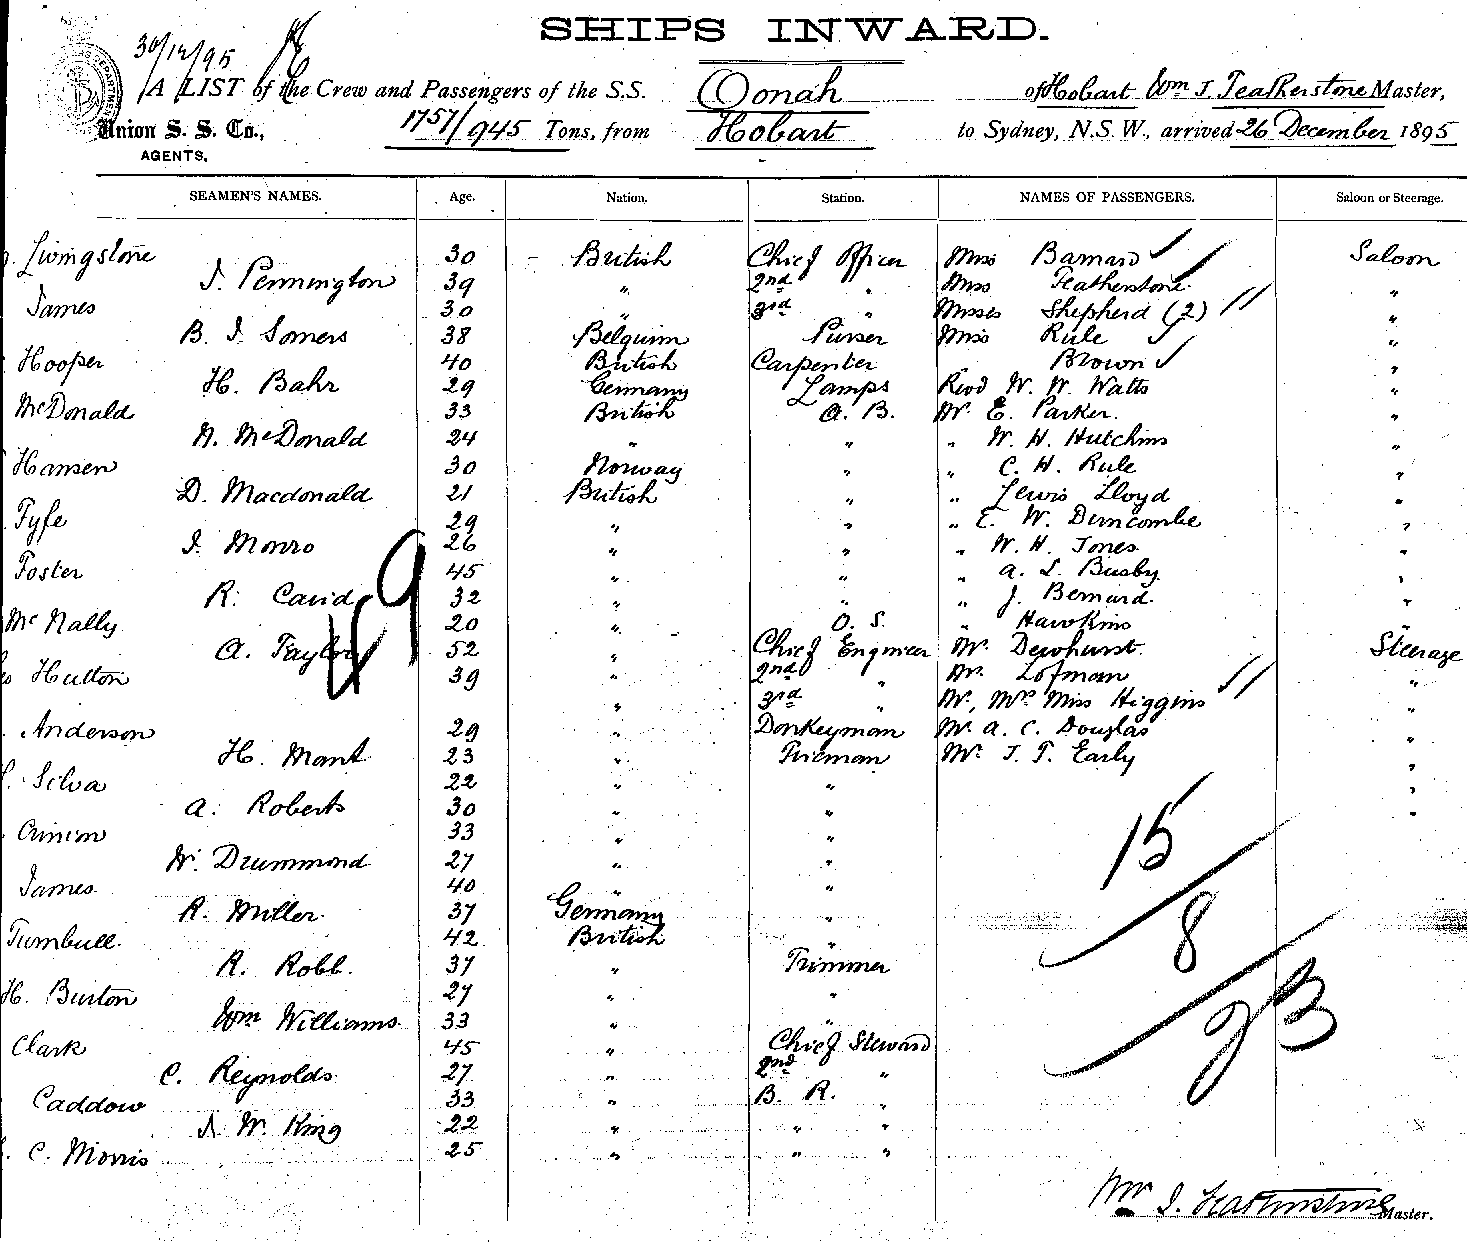 SHIPS INWARD.
30/12/95
A LIST of the Crew and Passengers of the S.S. Oonah of Hobart Wm J. Featherstone Master,
Union S. S. Co., AGENTS, 1757/945 Tons, from Hobart to Sydney, N.S.W., arrived 26 December 1895
SEAMEN'S NAMES. Age. Nation. Station. NAMES OF PASSENGERS. Saloon or Steerage.
Livingstone 30 British Chief Officer Miss Barnard Saloon
J. Pennington 39 " 2nd " Miss Featherstone "
James 30 " 3rd " Misses Shepherd (2) "
B. J. Somers 38 Belguim Purser Miss Rule "
Hooper 40 British Carpenter Brown "
H. Bahr 29 Germany Lamps Revd W. W. Watts "
McDonald 33 British A. B. Mr E. Parker. "
N. McDonald 24 " " " W. H. Hutchins "
Hansen 30 Norway " " C. H. Rule "
D. Macdonald 21 British " " Lewis Lloyd "
Fyfe 29 " " " E. W. Duncombe "
J. Monro 26 " " " W. H. Jones "
Foster 45 " " " A. L. Busby "
R. Caird 32 " " " J. Bernard. "
McNally 20 " O. S. " Hawkins "
A. Taylor 52 " Chief Engineer Mr. Dewhurst. Steerage
Hutton 39 " 2nd " Mr. Lofman "
" 3rd " Mr, Mrs Miss Higgins "
Anderson 29 " Donkeyman Mr. A. C. Douglas "
H. Mant 23 " Fireman Mr. J. T. Early "
Silva 22 " " "
A. Roberts 30 " " "
Crinion 33 " "
W. Drummond 27 " "
James 40 " "
R. Miller. 37 Germany "
Turnbull. 42 British "
R. Robb. 37 " Trimmer
H. Burton 27 " "
Wm Williams 33 " "
Clark 45 " Chief Steward
C. Reynolds 27 " 2nd "
Caddow 33 " B. R. "
J. W. King 22 " " "
C. Morris 25 " " "
49
15
8
23
Wm J. Featherstone Master.